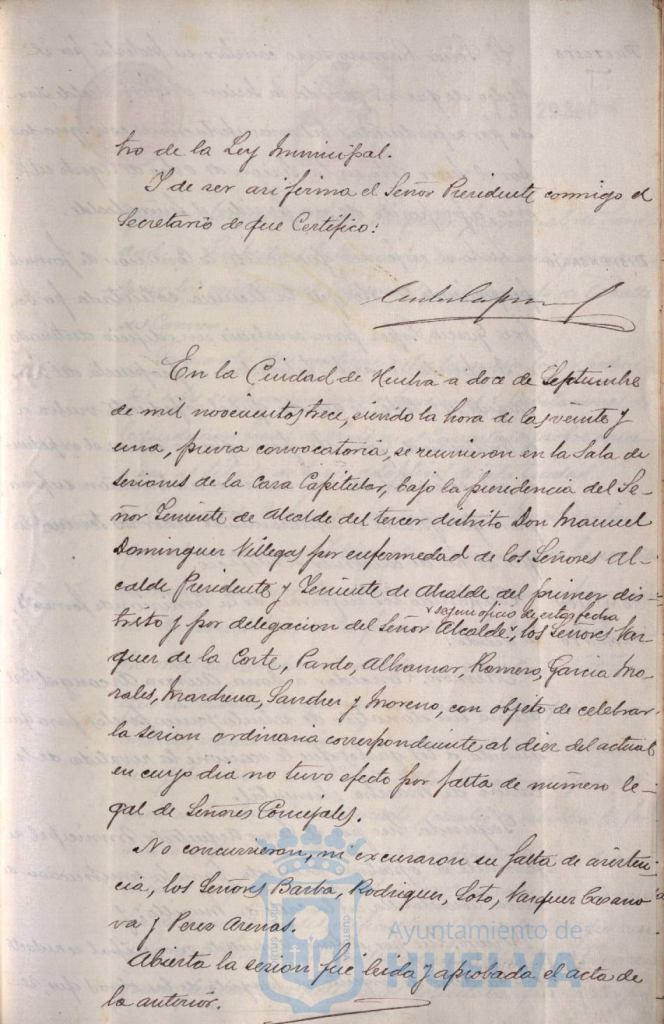 tro de la Ley Municipal.
Y de ser asi firma el Señor Presidente conmigo el
Secretario de que Certifico:
En la Ciudad de Huelva a doce de Septiembre
de mil novecientos trece, siendo la hora de las veinte y
una, previa convocatoria, se reunieron en la Sala de
sesiones de la Casa Capitular, bajo la presidencia del Se-
ñor Teniente de Alcalde del tercer distrito Don Manuel
Dominguez Villegas por enfermedad de los Señores Al-
calde Presidente y Teniente de Alcalde del primer dis-
segun oficio de esta fecha
trito y por delegacion del Señor Alcalde, los Señores Vaz-
quez de la Corte, Pardo, Alhamar, Romero, Garcia Mo-
rales, Marchena, Sanchez y Moreno, con objeto de celebrar
la sesion ordinaria correspondiente al diez del actual
en cuyo dia no tuvo efecto por falta de número le-
gal de Señores Concejales.
No concurrieron, ni excusaron su falta de asisten-
cia, los Señores Barba, Rodriguez, Soto, Vazquez Casano-
va y Perez Arenas.
Abierta la sesion fue leida y aprobada el acta de
la anterior.
Ayuntamiento de
HUELVA